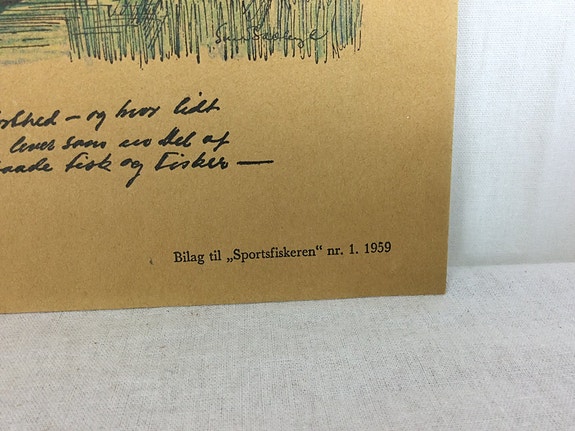 – og hvor lidt
lever som en del af
baade fisk og fisker —
Bilag til „Sportsfiskeren“ nr. 1. 1959